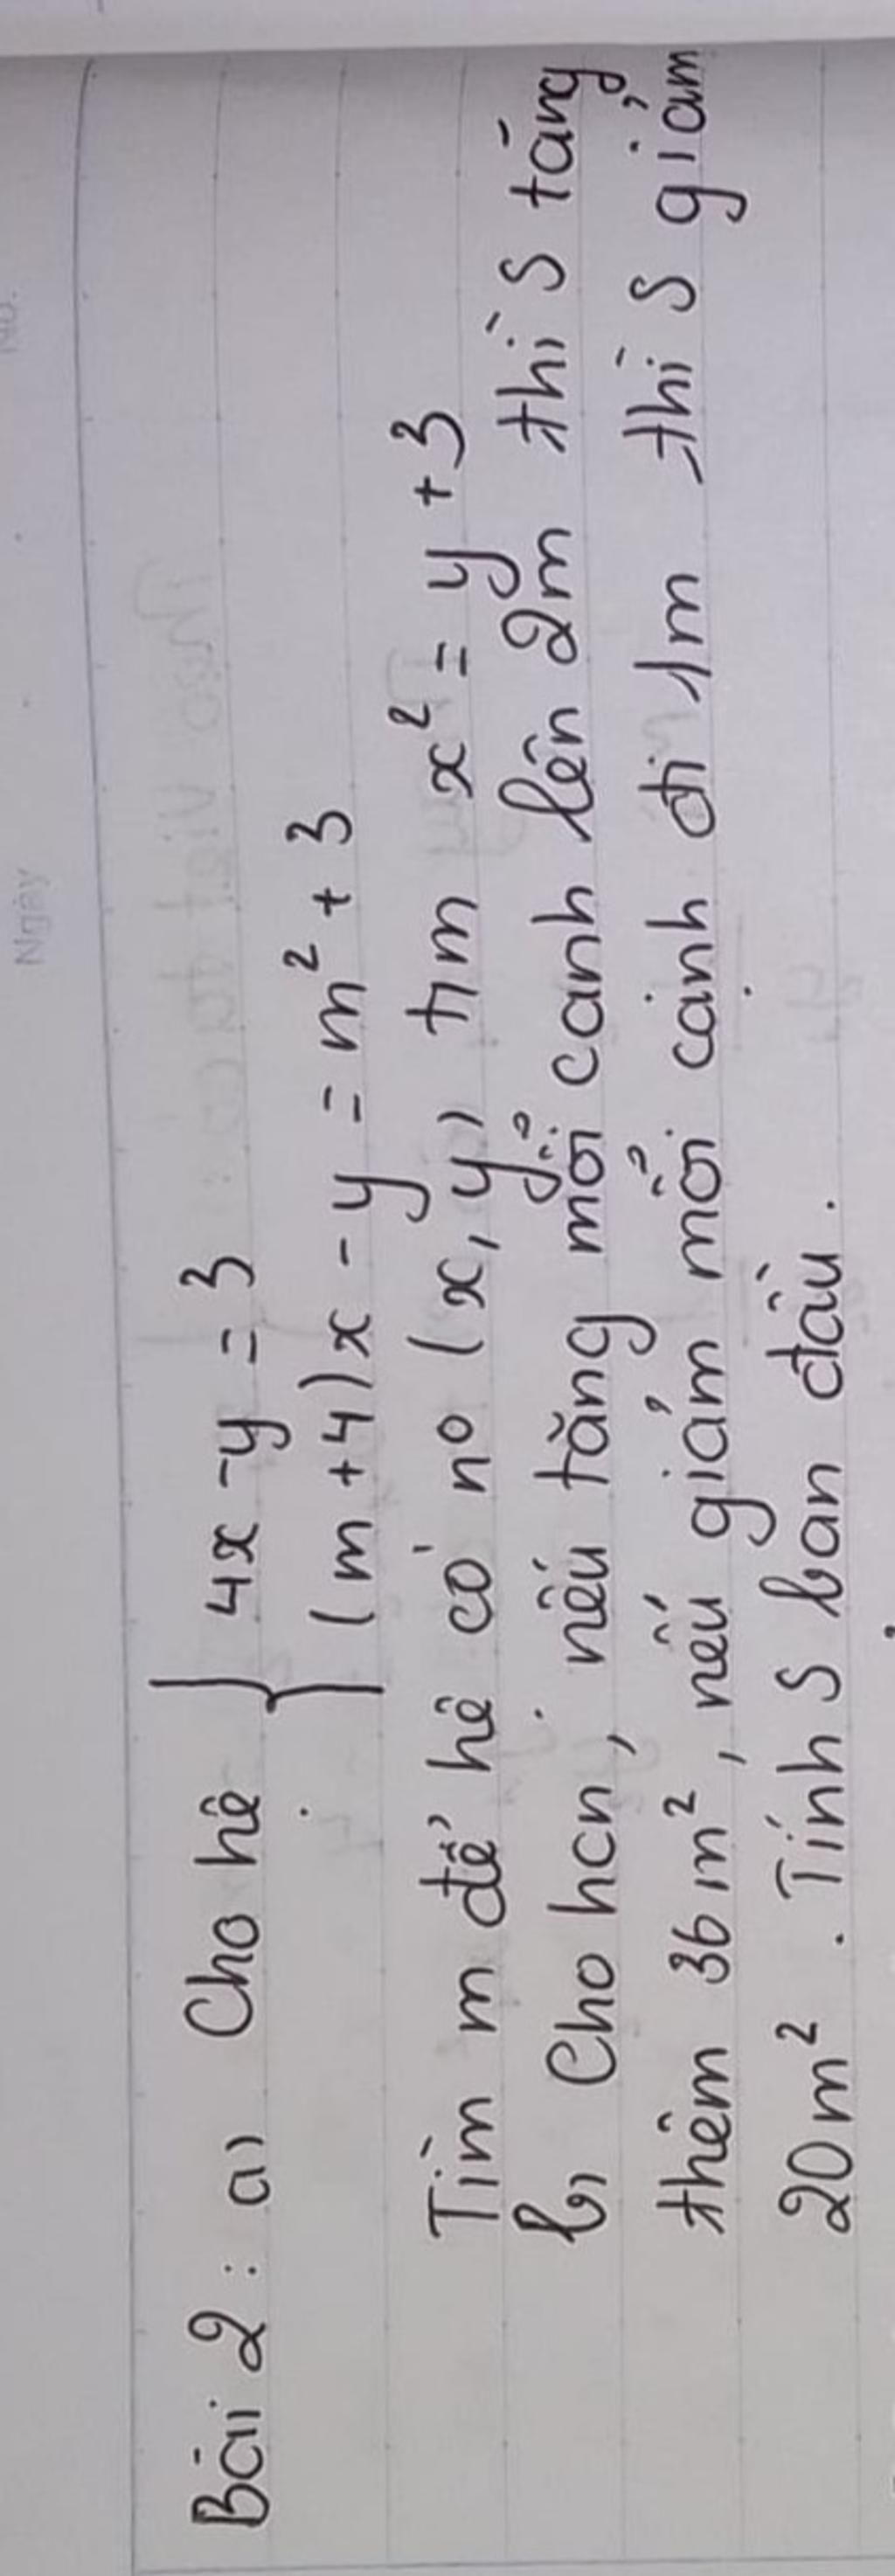 No.
Ngày
Bài 2: a, Cho hệ { 4x - y = 3
(m + 4)x - y = m² + 3
Tìm m để hệ có n° (x, y) tm x² = y + 3
b, Cho hcn, nếu tăng mỗi canh lên 2m thì S tăng
thêm 36 m², nếu giảm mỗi cạnh đi 1m thì S giảm
20m². Tính S ban đầu.